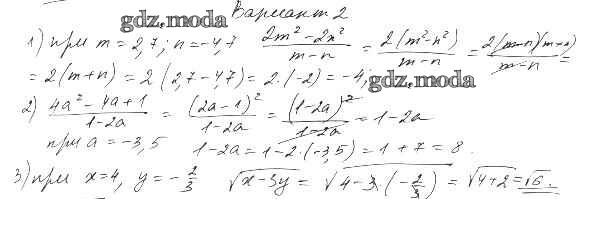 gdz.moda Вариант 2
1) при m = 2,7; n = -4,7 (2m² - 2n²)/(m - n) = 2(m² - n²)/(m - n) = 2(m - n)(m + n)/(m - n) =
= 2(m + n) = 2(2,7 - 4,7) = 2·(-2) = -4; gdz.moda
2) (4a² - 4a + 1)/(1 - 2a) = (2a - 1)²/(1 - 2a) = (1 - 2a)²/(1 - 2a) = 1 - 2a
при a = -3,5 1 - 2a = 1 - 2·(-3,5) = 1 + 7 = 8.
3) при x = 4, y = -2/3 √(x - 3y) = √(4 - 3·(-2/3)) = √(4 + 2) = √6.